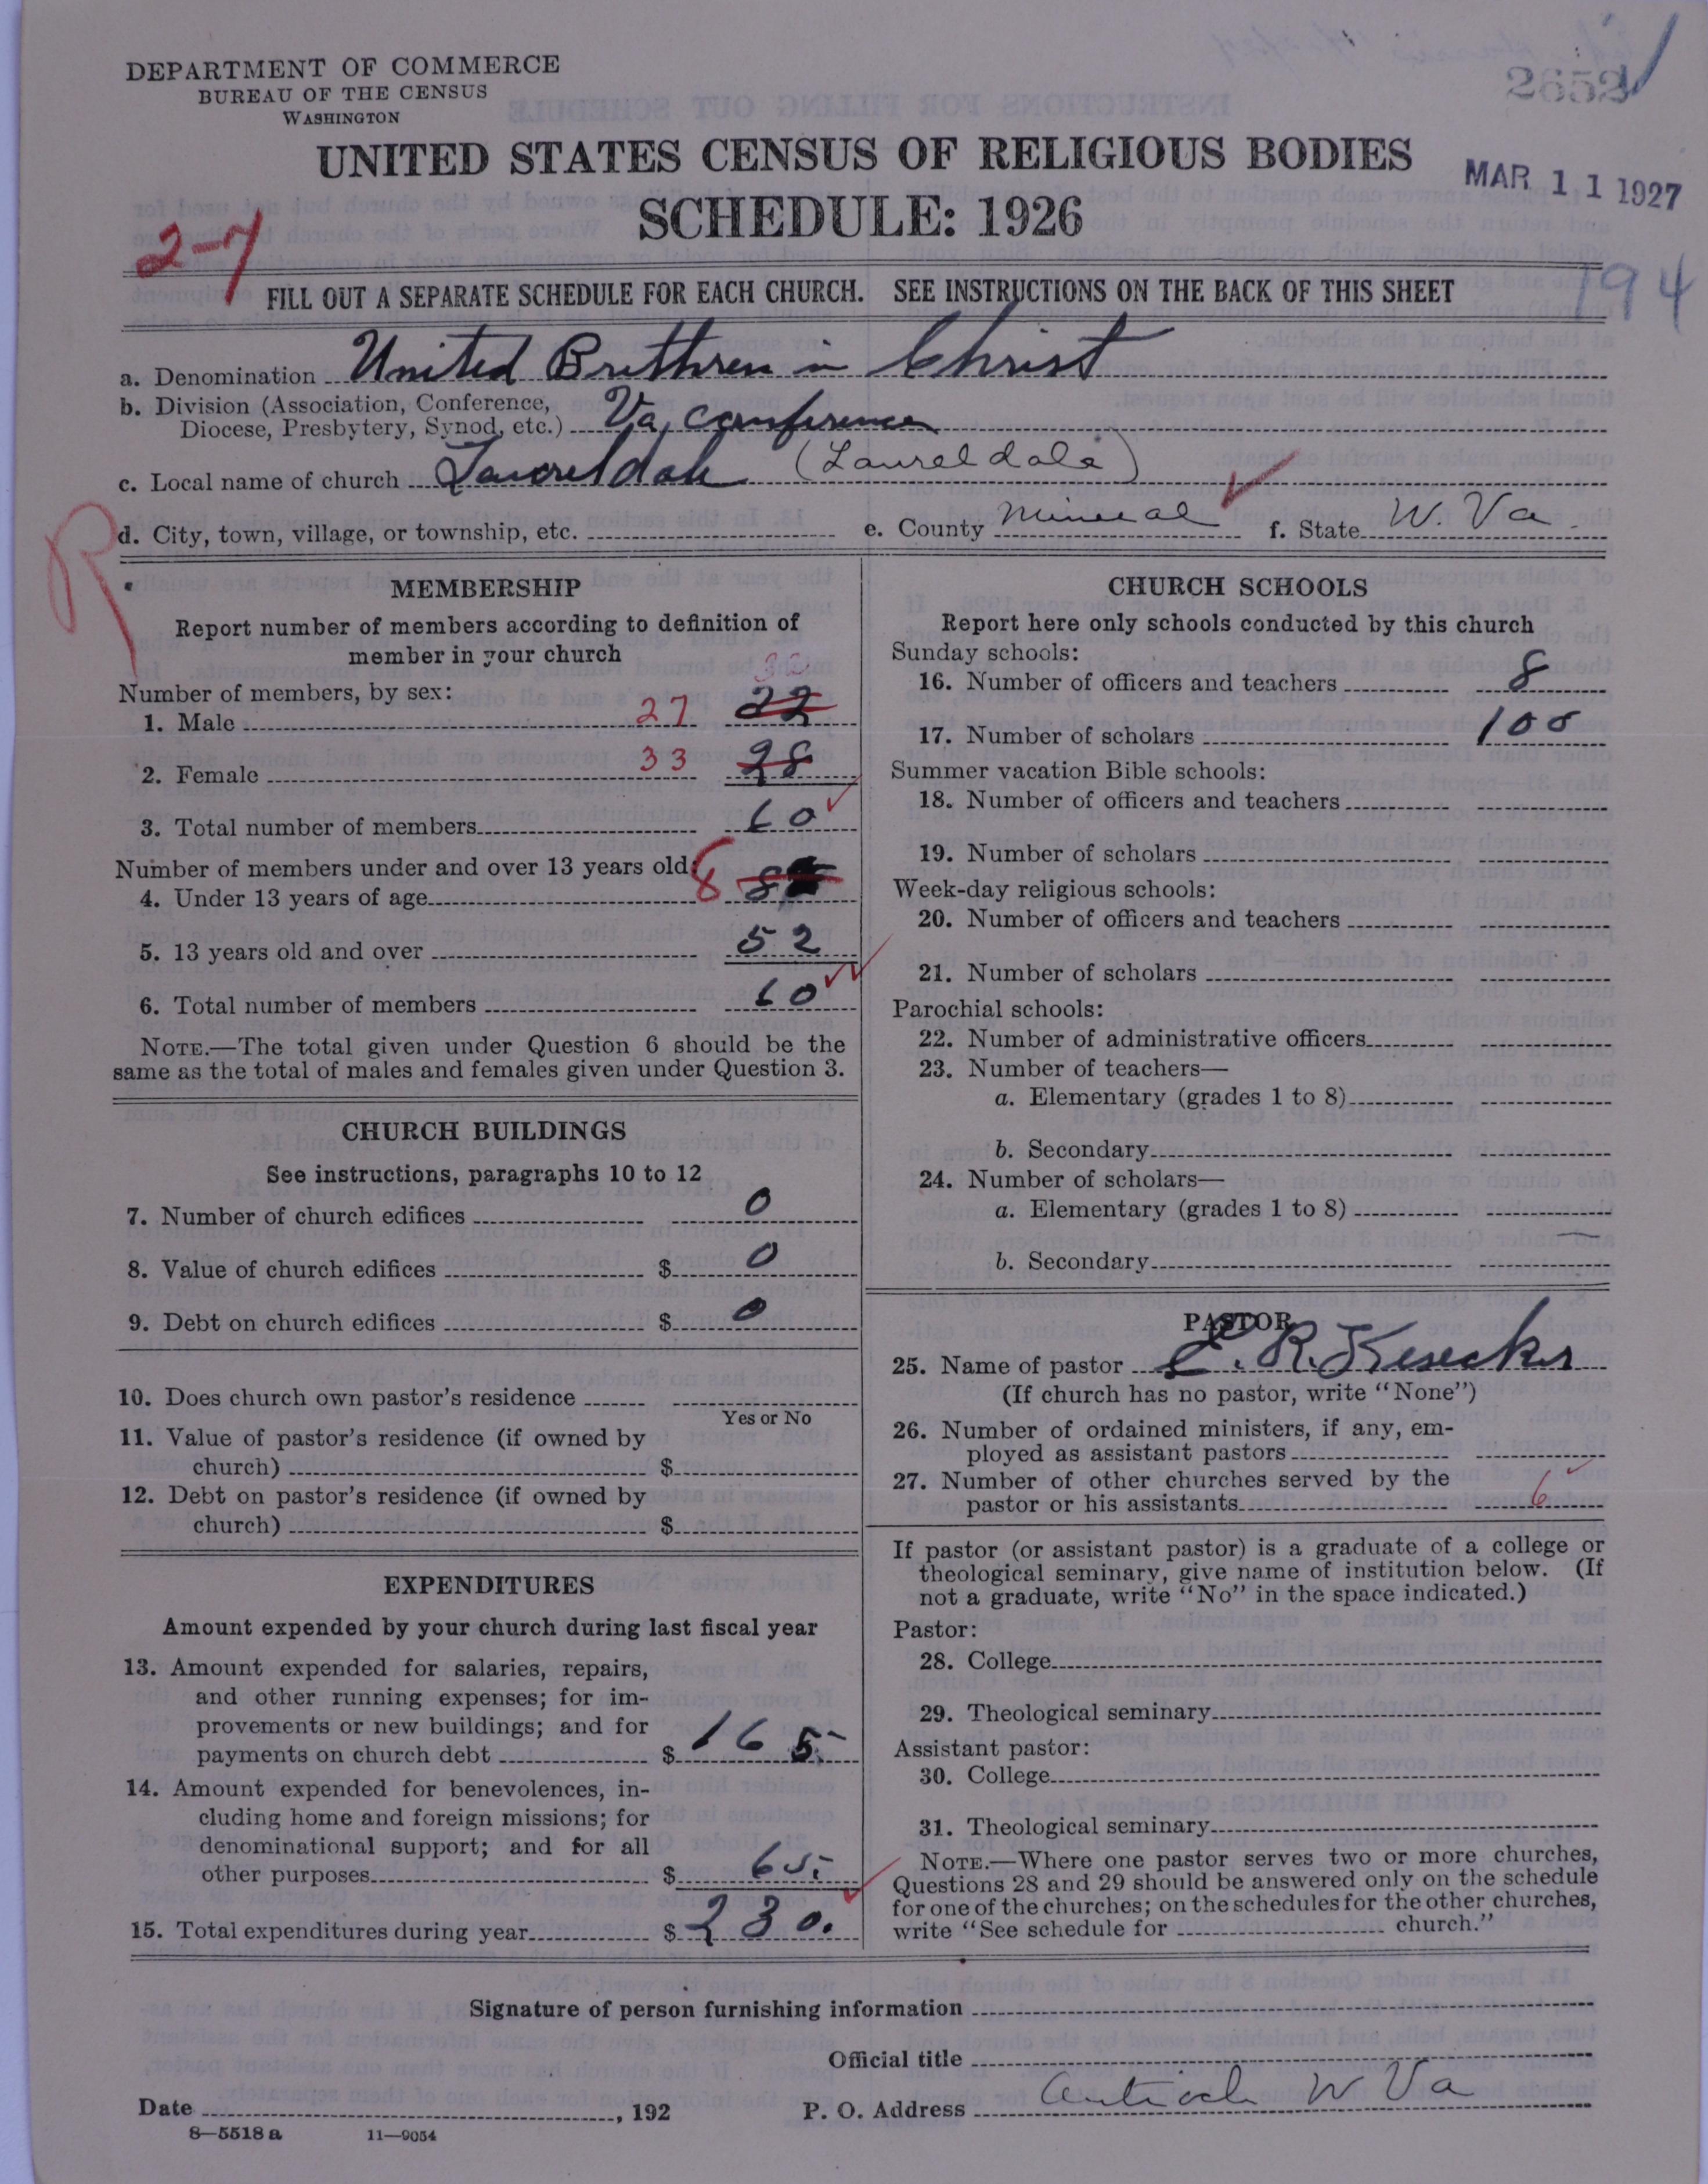 DEPARTMENT OF COMMERCE
BUREAU OF THE CENSUS
WASHINGTON
2652
UNITED STATES CENSUS OF RELIGIOUS BODIES
MAR 11 1927
SCHEDULE: 1926
2-7
194
FILL OUT A SEPARATE SCHEDULE FOR EACH CHURCH. SEE INSTRUCTIONS ON THE BACK OF THIS SHEET
a. Denomination United Brethren in Christ
b. Division (Association, Conference,
Diocese, Presbytery, Synod, etc.) Va, conference
c. Local name of church Laureldale (Laureldale)
R
d. City, town, village, or township, etc. e. County Mineral f. State W. Va.
MEMBERSHIP
Report number of members according to definition of
member in your church
Number of members, by sex:
1. Male 27 22
2. Female 33 28
3. Total number of members 60
Number of members under and over 13 years old:
4. Under 13 years of age 8 8
5. 13 years old and over 52
6. Total number of members 60
NOTE.—The total given under Question 6 should be the
same as the total of males and females given under Question 3.
CHURCH BUILDINGS
See instructions, paragraphs 10 to 12
7. Number of church edifices 0
8. Value of church edifices $ 0
9. Debt on church edifices $ 0
10. Does church own pastor's residence
Yes or No
11. Value of pastor's residence (if owned by
church) $
12. Debt on pastor's residence (if owned by
church) $
EXPENDITURES
Amount expended by your church during last fiscal year
13. Amount expended for salaries, repairs,
and other running expenses; for im-
provements or new buildings; and for
payments on church debt $ 165
14. Amount expended for benevolences, in-
cluding home and foreign missions; for
denominational support; and for all
other purposes $ 65
15. Total expenditures during year $ 230.
CHURCH SCHOOLS
Report here only schools conducted by this church
Sunday schools:
16. Number of officers and teachers 8
17. Number of scholars 100
Summer vacation Bible schools:
18. Number of officers and teachers
19. Number of scholars
Week-day religious schools:
20. Number of officers and teachers
21. Number of scholars
Parochial schools:
22. Number of administrative officers
23. Number of teachers—
a. Elementary (grades 1 to 8)
b. Secondary
24. Number of scholars—
a. Elementary (grades 1 to 8)
b. Secondary
PASTOR
25. Name of pastor E. R. Kesecker
(If church has no pastor, write "None")
26. Number of ordained ministers, if any, em-
ployed as assistant pastors
27. Number of other churches served by the
pastor or his assistants 6
If pastor (or assistant pastor) is a graduate of a college or
theological seminary, give name of institution below. (If
not a graduate, write "No" in the space indicated.)
Pastor:
28. College
29. Theological seminary
Assistant pastor:
30. College
31. Theological seminary
NOTE.—Where one pastor serves two or more churches,
Questions 28 and 29 should be answered only on the schedule
for one of the churches; on the schedules for the other churches,
write "See schedule for church."
Signature of person furnishing information
Official title
Date , 192 P. O. Address Antioch W Va
8—5518 a 11—9054